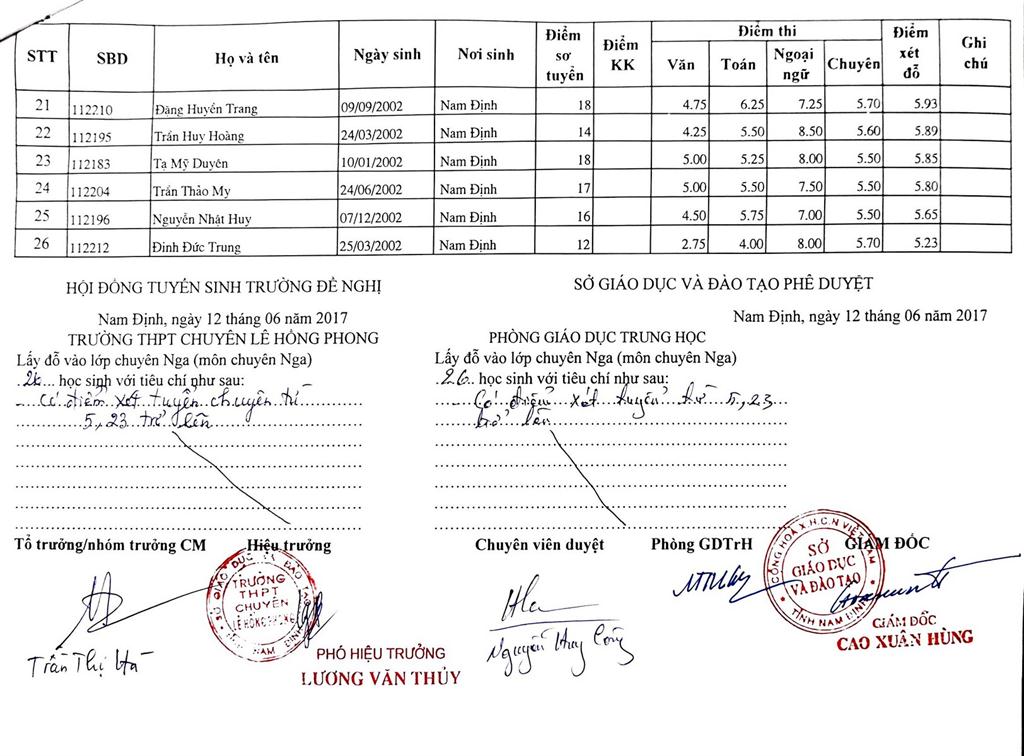 STT SBD Họ và tên Ngày sinh Nơi sinh Điểm sơ tuyển Điểm KK Điểm thi Điểm xét đỗ Ghi chú
Văn Toán Ngoại ngữ Chuyên
21 112210 Đăng Huyền Trang 09/09/2002 Nam Định 18 4.75 6.25 7.25 5.70 5.93
22 112195 Trần Huy Hoàng 24/03/2002 Nam Định 14 4.25 5.50 8.50 5.60 5.89
23 112183 Tạ Mỹ Duyên 10/01/2002 Nam Định 18 5.00 5.25 8.00 5.50 5.85
24 112204 Trần Thảo My 24/06/2002 Nam Định 17 5.00 5.50 7.50 5.50 5.80
25 112196 Nguyễn Nhật Huy 07/12/2002 Nam Định 16 4.50 5.75 7.00 5.50 5.65
26 112212 Đinh Đức Trung 25/03/2002 Nam Định 12 2.75 4.00 8.00 5.70 5.23
HỘI ĐỒNG TUYỂN SINH TRƯỜNG ĐỀ NGHỊ
Nam Định, ngày 12 tháng 06 năm 2017
TRƯỜNG THPT CHUYÊN LÊ HỒNG PHONG
Lấy đỗ vào lớp chuyên Nga (môn chuyên Nga)
học sinh với tiêu chí như sau:
Có điểm xét tuyển chuyên từ
5,23 trở lên
Tổ trưởng/nhóm trưởng CM Hiệu trưởng
SỞ GIÁO DỤC VÀ ĐÀO TẠO
TRƯỜNG
THPT
CHUYÊN
LÊ HỒNG PHONG
NAM ĐỊNH
Trần Thị Hà
PHÓ HIỆU TRƯỞNG
LƯƠNG VĂN THỦY
SỞ GIÁO DỤC VÀ ĐÀO TẠO PHÊ DUYỆT
Nam Định, ngày 12 tháng 06 năm 2017
PHÒNG GIÁO DỤC TRUNG HỌC
Lấy đỗ vào lớp chuyên Nga (môn chuyên Nga)
26 học sinh với tiêu chí như sau:
Có điểm xét tuyển từ 5,23
trở lên
Chuyên viên duyệt Phòng GDTrH GIÁM ĐỐC
CỘNG HÒA X.H.C.N VIỆT NAM
SỞ
GIÁO DỤC
VÀ ĐÀO TẠO
TỈNH NAM ĐỊNH
Nguyễn Huy Công
GIÁM ĐỐC
CAO XUÂN HÙNG